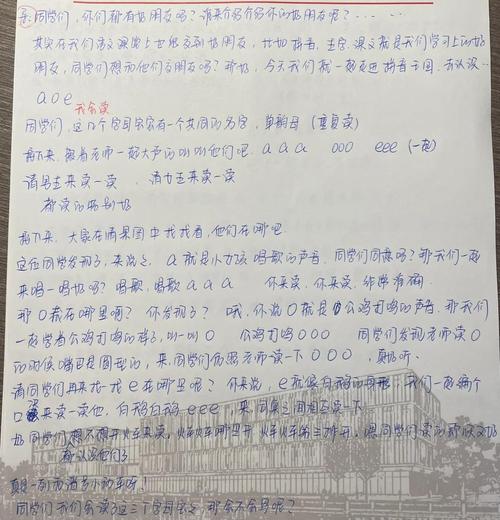 亲 同学们，你们都有好朋友吗？谁来介绍介绍你的好朋友呢？……
其实在我们语文课堂上也能交到好朋友，比如拼音、生字、课文就是我们学习上的好
朋友，同学们想和他们交朋友吗？那好，今天我们就一起走进拼音王国，去认识…
a o e
我会读
同学们，这几个字母宝宝有一个共同的名字，单韵母（重复读）
接下来，跟着老师一起大声的叫叫他们吧. a a a ooo eee（一起）
请男生来读一读 . 请女生来读一读
都读的特别好
接下来，大家在情景图中找找看，他们在哪吧
这位同学发现了，来说之，a就是小女孩唱歌的声音，同学们同意吗？那我们一起
来唱一唱好吗？唱歌，唱歌 a a a 你来读，你来读，非常准确.
那O藏在哪里啊？你发现了？哦，你说O就是公鸡打鸣的声音，那我们
一起学着公鸡打鸣的 叫一叫O 公鸡打鸣OOO 同学们发现老师读O
的时候嘴巴是圆圆的，来，同学们仿照老师读一下OOO，真好听.
请同学们再来找一找e在哪里呢？你来说，e就像白鹅的 ，我们一起编个
口 来读一读他，白鹅白鹅eee，来，同桌之间相互读一下
好 同学们想不想开火车来读，火车火车哪里开 火车火车第三排开，
都认识他们了
真是一列 的小动车呀！
同学们我们会读了这三个字母宝宝，那会不会写呢？